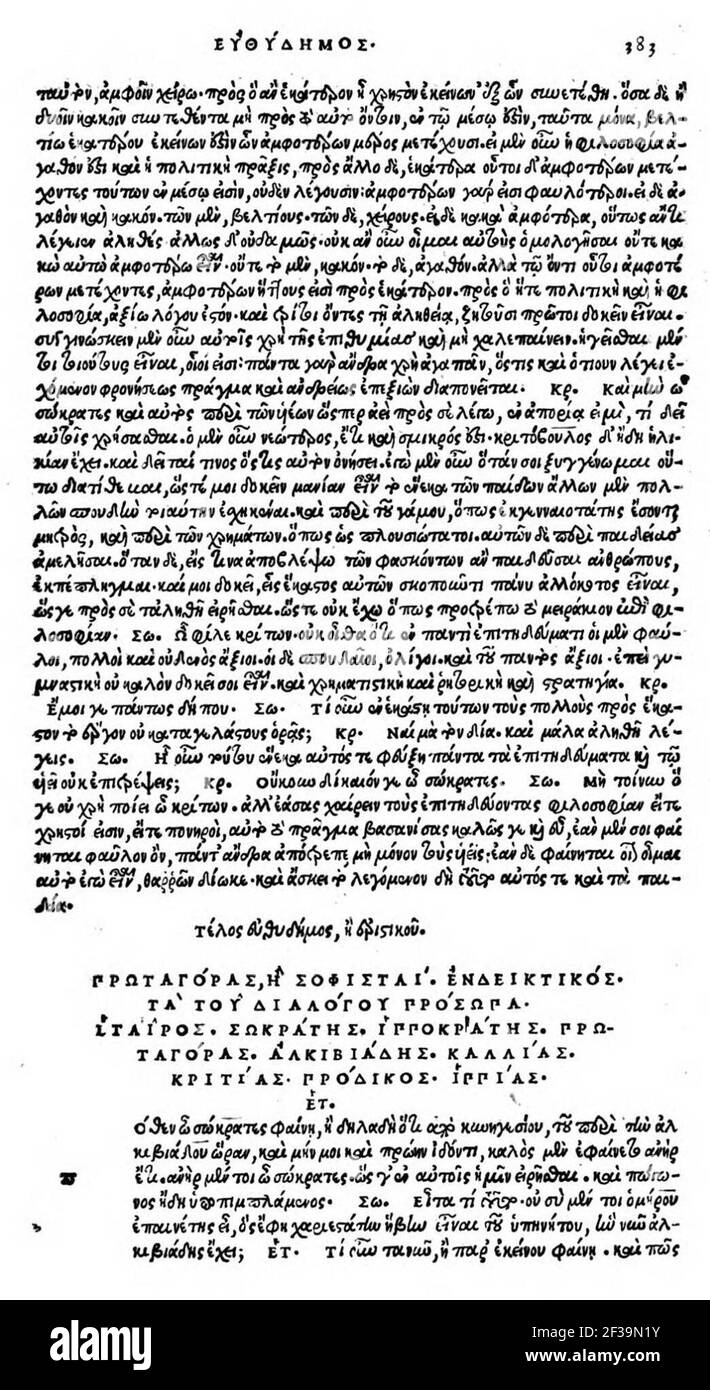 ΕΥΘΥΔΗΜΟΣ. 383
ταυτόν, ἀμφοῖν χείρω. πρὸς ὃ ἂν ἑκάτερον ᾖ χρηστὸν ἐκείνων ἐξ ὧν συνετέθη. ὅσα δὲ ἐκ
δυοῖν κακοῖν συντεθέντα μὴ πρὸς τὸ αὐτὸ ὄντοιν, ἐν τῷ μέσῳ ἐστὶν, ταῦτα μόνα, βελ-
τίω ἑκατέρου ἐκείνων ἐστὶν ὧν ἀμφοτέρων μέρος μετέχουσι. εἰ μὲν οὖν ἡ φιλοσοφία ἀ-
γαθόν ἐστι καὶ ἡ πολιτικὴ πρᾶξις, πρὸς ἄλλο δὲ, ἑκατέρα οὗτοι δ' ἀμφοτέρων μετέ-
χοντες τούτων ἐν μέσῳ εἰσὶν, οὐδὲν λέγουσιν: ἀμφοτέρων γάρ εἰσι φαυλότεροι. εἰ δὲ ἀ-
γαθὸν καὶ κακόν. τῶν μὲν, βελτίους. τῶν δὲ, χείρους. εἰ δὲ κακὰ ἀμφότερα, οὕτως ἄν τι
λέγοιεν ἀληθὲς ἄλλως δ' οὐδαμῶς. οὐκ ἂν οὖν οἶμαι αὐτοὺς ὁμολογῆσαι οὔτε κα
κὼ αὐτὼ ἀμφοτέρω εἶναι. οὔτε τὸ μὲν, κακόν. τὸ δὲ, ἀγαθόν. ἀλλὰ τῷ ὄντι οὗτοι ἀμφοτέ
ρων μετέχοντες, ἀμφοτέρων ἥττους εἰσὶ πρὸς ἑκάτερον. πρὸς ὃ ἥτε πολιτικὴ καὶ ἡ φι
λοσοφία, ἀξίω λόγου ἐστόν. καὶ τρίτοι ὄντες τῇ ἀληθείᾳ, ζητοῦσι πρῶτοι δοκεῖν εἶναι.
συγγινώσκειν μὲν οὖν αὐτοῖς χρὴ τῆς ἐπιθυμίας καὶ μὴ χαλεπαίνειν. ἡγεῖσθαι μὲν
τοι τοιούτους εἶναι, οἷοί εἰσι: πάντα γὰρ ἄνδρα χρὴ ἀγαπᾶν, ὅστις καὶ ὁτιοῦν λέγει ἐ-
χόμενον φρονήσεως πρᾶγμα καὶ ἀνδρείως ἐπεξιὼν διαπονεῖται. Κρ. Καὶ μὴν ὦ
σώκρατες καὶ αὐτὸς περὶ τῶν ὑέων ὥσπερ ἀεὶ πρὸς σὲ λέγω, ἐν ἀπορίᾳ εἰμὶ, τί δεῖ
αὐτοῖς χρήσασθαι. ὁ μὲν οὖν νεώτερος, ἔτι καὶ σμικρός ἐστι. κριτόβουλος δ' ἤδη ἡλι-
κίαν ἔχει. καὶ δεῖταί τινος ὅστις αὐτὸν ὀνήσει. ἐγὼ μὲν οὖν ὅταν σοι ξυγγένωμαι οὕ-
τω διατίθεμαι, ὥστέ μοι δοκεῖν μανίαν εἶναι τὸ ἕνεκα τῶν παίδων ἄλλων μὲν πολ-
λῶν σπουδὴν τοιαύτην ἐσχηκέναι. καὶ περὶ τοῦ γάμου, ὅπως ἐκ γενναιοτάτης ἔσονται
μητρός, καὶ περὶ τῶν χρημάτων. ὅπως ὡς πλουσιώτατοι. αὐτῶν δὲ περὶ παιδείας
ἀμελῆσαι. ὅταν δὲ, εἴς τινα ἀποβλέψω τῶν φασκόντων ἂν παιδεῦσαι ἀνθρώπους,
ἐκπέπληγμαι. καί μοι δοκεῖ, εἷς ἕκαστος αὐτῶν σκοποῦντι πάνυ ἀλλόκοτος εἶναι,
ὥς γε πρὸς σὲ τἀληθῆ εἰρῆσθαι. ὥστε οὐκ ἔχω ὅπως προτρέπω τὸ μειράκιον ἐπὶ φι-
λοσοφίαν. Σω. Ὦ φίλε κρίτων. οὐκ οἶσθα ὅτι ἐν παντὶ ἐπιτηδεύματι οἱ μὲν φαῦ-
λοι, πολλοὶ καὶ οὐδενὸς ἄξιοι. οἱ δὲ σπουδαῖοι, ὀλίγοι. καὶ τοῦ παντὸς ἄξιοι. ἐπεὶ γυ-
μναστικὴ οὐ καλὸν δοκεῖ σοι εἶναι. καὶ χρηματιστικὴ καὶ ῥητορικὴ καὶ στρατηγία. Κρ.
Ἔμοιγε πάντως δήπου. Σω. Τί οὖν ἐν ἑκάστῃ τούτων τοὺς πολλοὺς πρὸς ἕκα-
στον τὸ ἔργον οὐ καταγελάστους ὁρᾷς; Κρ. Ναὶ μὰ τὸν δία. καὶ μάλα ἀληθῆ λέ-
γεις. Σω. Ἦ οὖν τούτου ἕνεκα αὐτός τε φεύξῃ πάντα τὰ ἐπιτηδεύματα καὶ τῷ
ὑεῖ οὐκ ἐπιτρέψεις; Κρ. Οὔκουν δίκαιόν γε ὦ σώκρατες. Σω. Μὴ τοίνυν ὅ
γε οὐ χρὴ ποίει ὦ κρίτων. ἀλλ' ἐάσας χαίρειν τοὺς ἐπιτηδεύοντας φιλοσοφίαν εἴτε
χρηστοί εἰσιν, εἴτε πονηροὶ, αὐτὸ τὸ πρᾶγμα βασανίσας καλῶς γε καὶ εὖ, ἐὰν μέν σοι φαί
νηται φαῦλον ὂν, πάντ' ἄνδρα ἀπότρεπε μὴ μόνον τοὺς ὑεῖς: ἐὰν δὲ φαίνηται οἷον οἶμαι
αὐτὸ ἐγὼ εἶναι, θαῤῥῶν δίωκε. καὶ ἄσκει τὸ λεγόμενον δὴ τοῦτο αὐτός τε καὶ τὰ παι-
δία.
Τέλος εὐθυδήμος, ἢ ἐριστικοῦ.
ΠΡΩΤΑΓΟΡΑΣ, Ἢ ΣΟΦΙΣΤΑΙ. ΕΝΔΕΙΚΤΙΚΟΣ.
ΤΑ ΤΟΥ ΔΙΑΛΟΓΟΥ ΠΡΟΣΩΠΑ.
ΕΤΑΙΡΟΣ. ΣΩΚΡΑΤΗΣ. ΙΠΠΟΚΡΑΤΗΣ. ΠΡΩ-
ΤΑΓΟΡΑΣ. ΑΛΚΙΒΙΑΔΗΣ. ΚΑΛΛΙΑΣ.
ΚΡΙΤΙΑΣ. ΠΡΟΔΙΚΟΣ. ΙΠΠΙΑΣ.
ΕΤ.
Ὅθεν ὦ σώκρατες φαίνῃ, ἢ δηλαδὴ ὅτι ἀπὸ κυνηγεσίου, τοῦ περὶ τὴν ἀλ
κιβιάδου ὥραν, καὶ μήν μοι καὶ πρώην ἰδόντι, καλὸς μὲν ἐφαίνετο ἀνὴρ
π ἔτι. ἀνὴρ μέν τοι ὦ σώκρατες. ὥς γ' ἐν αὐτοῖς ἡμῖν εἰρῆσθαι. καὶ πώγω-
νος ἤδη ὑποπιμπλάμενος. Σω. Εἶτα τί τοῦτο. οὐ σὺ μέν τοι ὁμήρου
ἐπαινέτης εἶ, ὃς ἔφη χαριεστάτην ἥβην εἶναι τοῦ ὑπηνήτου, ἣν νῦν ἀλ-
κιβιάδης ἔχει; ΕΤ. Τί οὖν τανῦν, ἦ παρ' ἐκείνου φαίνῃ. καὶ πῶς
alamy
Image ID: 2F39N1Y
www.alamy.com